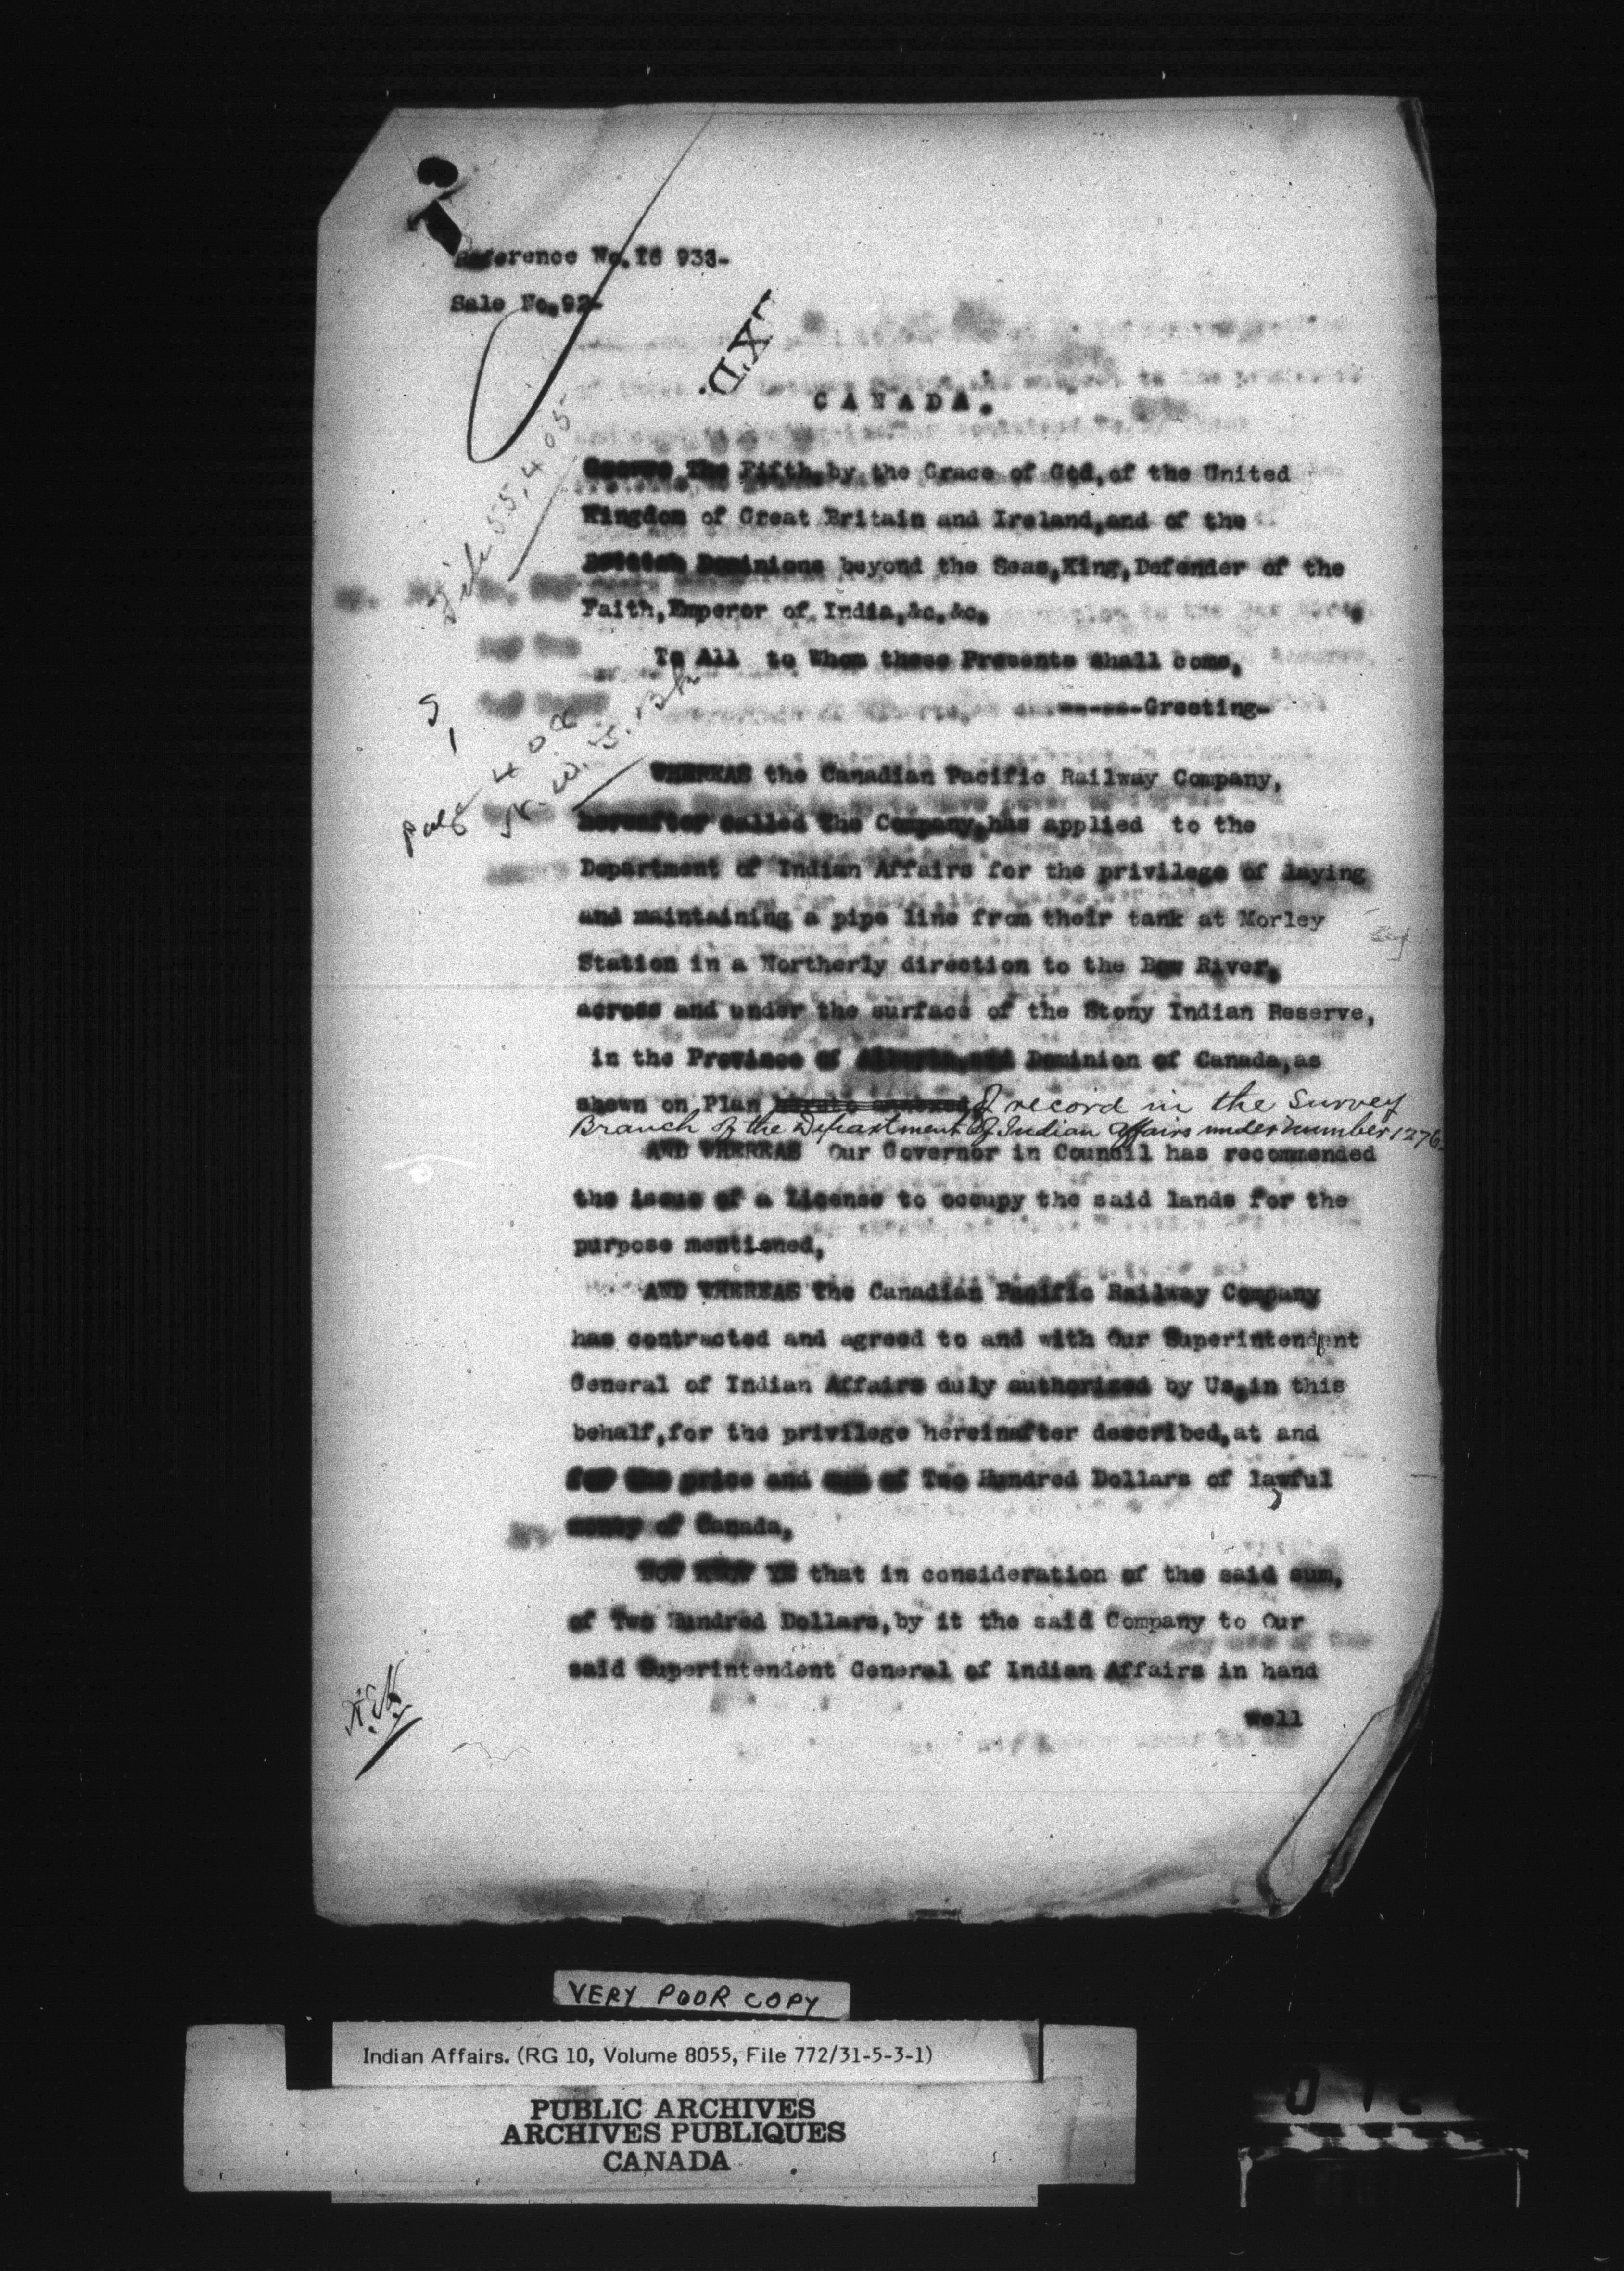 Reference No. 16 933-
Sale No. 92-
LXD.
CANADA.
File 55,405
George The Fifth by the Grace of God, of the United
Kingdom of Great Britain and Ireland, and of the
British Dominions beyond the Seas, King, Defender of the
Faith, Emperor of India, &c. &c.
To All to Whom these Presents shall come,
------Greeting-
WHEREAS the Canadian Pacific Railway Company,
hereafter called the Company, has applied to the
Department of Indian Affairs for the privilege of laying
and maintaining a pipe line from their tank at Morley
Station in a Northerly direction to the Bow River,
across and under the surface of the Stony Indian Reserve,
in the Province of Alberta, and Dominion of Canada, as
shown on Plan hereto annexed of record in the Survey
Branch of the Department of Indian Affairs under number 1276.
AND WHEREAS Our Governor in Council has recommended
the issue of a License to occupy the said lands for the
purpose mentioned,
AND WHEREAS the Canadian Pacific Railway Company
has contracted and agreed to and with Our Superintendent
General of Indian Affairs duly authorized by Us, in this
behalf, for the privilege hereinafter described, at and
for the price and sum of Two Hundred Dollars of lawful
money of Canada,
NOW KNOW YE that in consideration of the said sum,
of Two Hundred Dollars, by it the said Company to Our
said Superintendent General of Indian Affairs in hand
well
VERY POOR COPY
Indian Affairs. (RG 10, Volume 8055, File 772/31-5-3-1)
PUBLIC ARCHIVES
ARCHIVES PUBLIQUES
CANADA